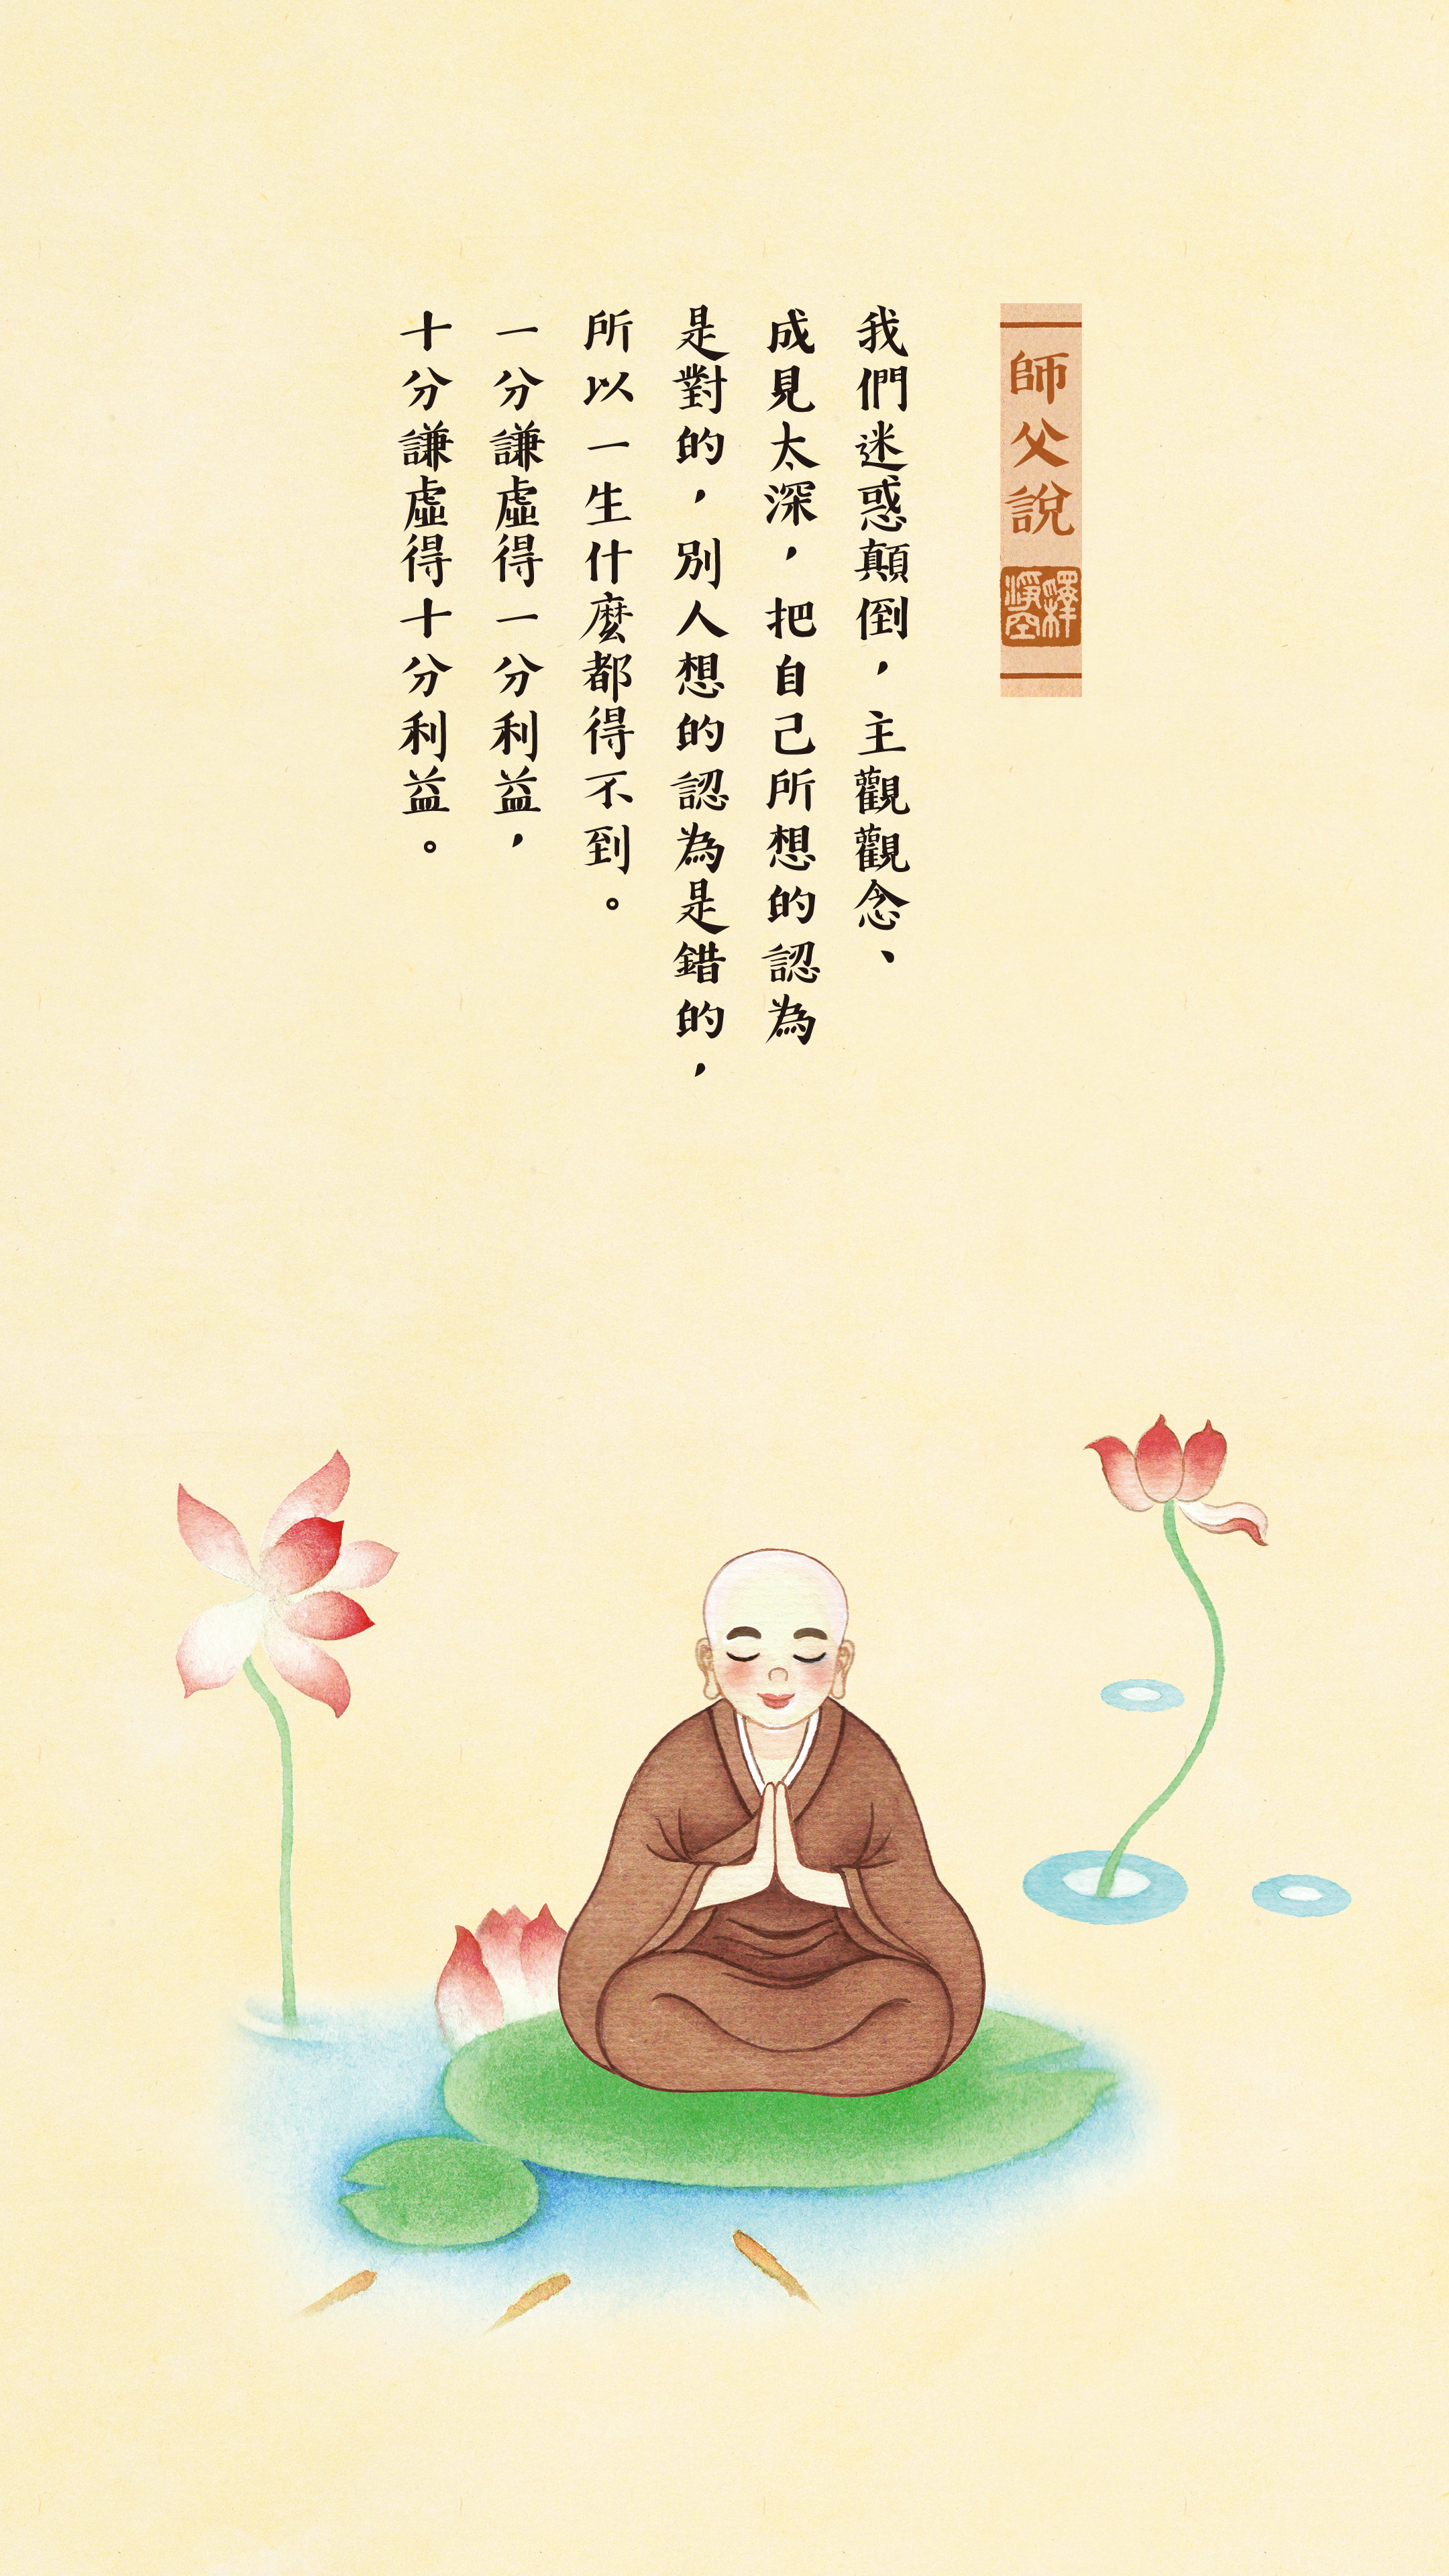 師父說
釋淨空
我們迷惑顛倒，主觀觀念、
成見太深，把自己所想的認為
是對的，別人想的認為是錯的，
所以一生什麼都得不到。
一分謙虛得一分利益，
十分謙虛得十分利益。